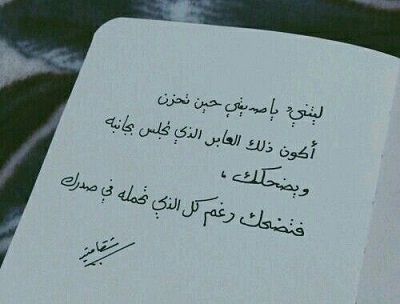 ليتني ياصديقي حين تحزن
أكون ذلك العابر الذي تجلس بجانبه
ويضحكك ،
فتضحك رغم كل الذي تحمله في صدرك